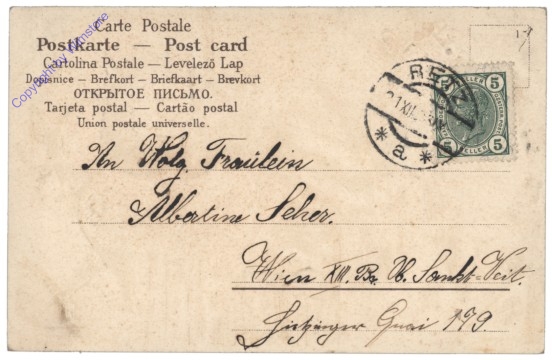 Carte Postale
Postkarte — Post card
Cartolina Postale — Levelező Lap
Dopisnice — Brefkort — Briefkaart — Brevkort
ОТКРЫТОЕ ПИСЬМО.
Tarjeta postal — Cartão postal
Union postale universelle.
Copyright by
RETZ
XII
* a *
5 5
5 5
HELLER
An Wolg. Fräulein
Albertine Seher.
Wien XIII. Bz. Sankt-Veit.
Hietzinger Quai 179.